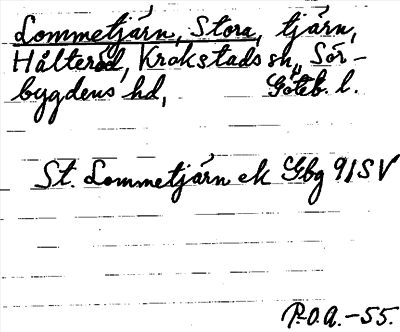 Lommetjärn, Stora, tjärn,
Hålteröd, Krokstads sn, Sör-
bygdens hd, Göteb. l.
St. Lommetjärn ek Gbg 91SV
P.O.A.-55.